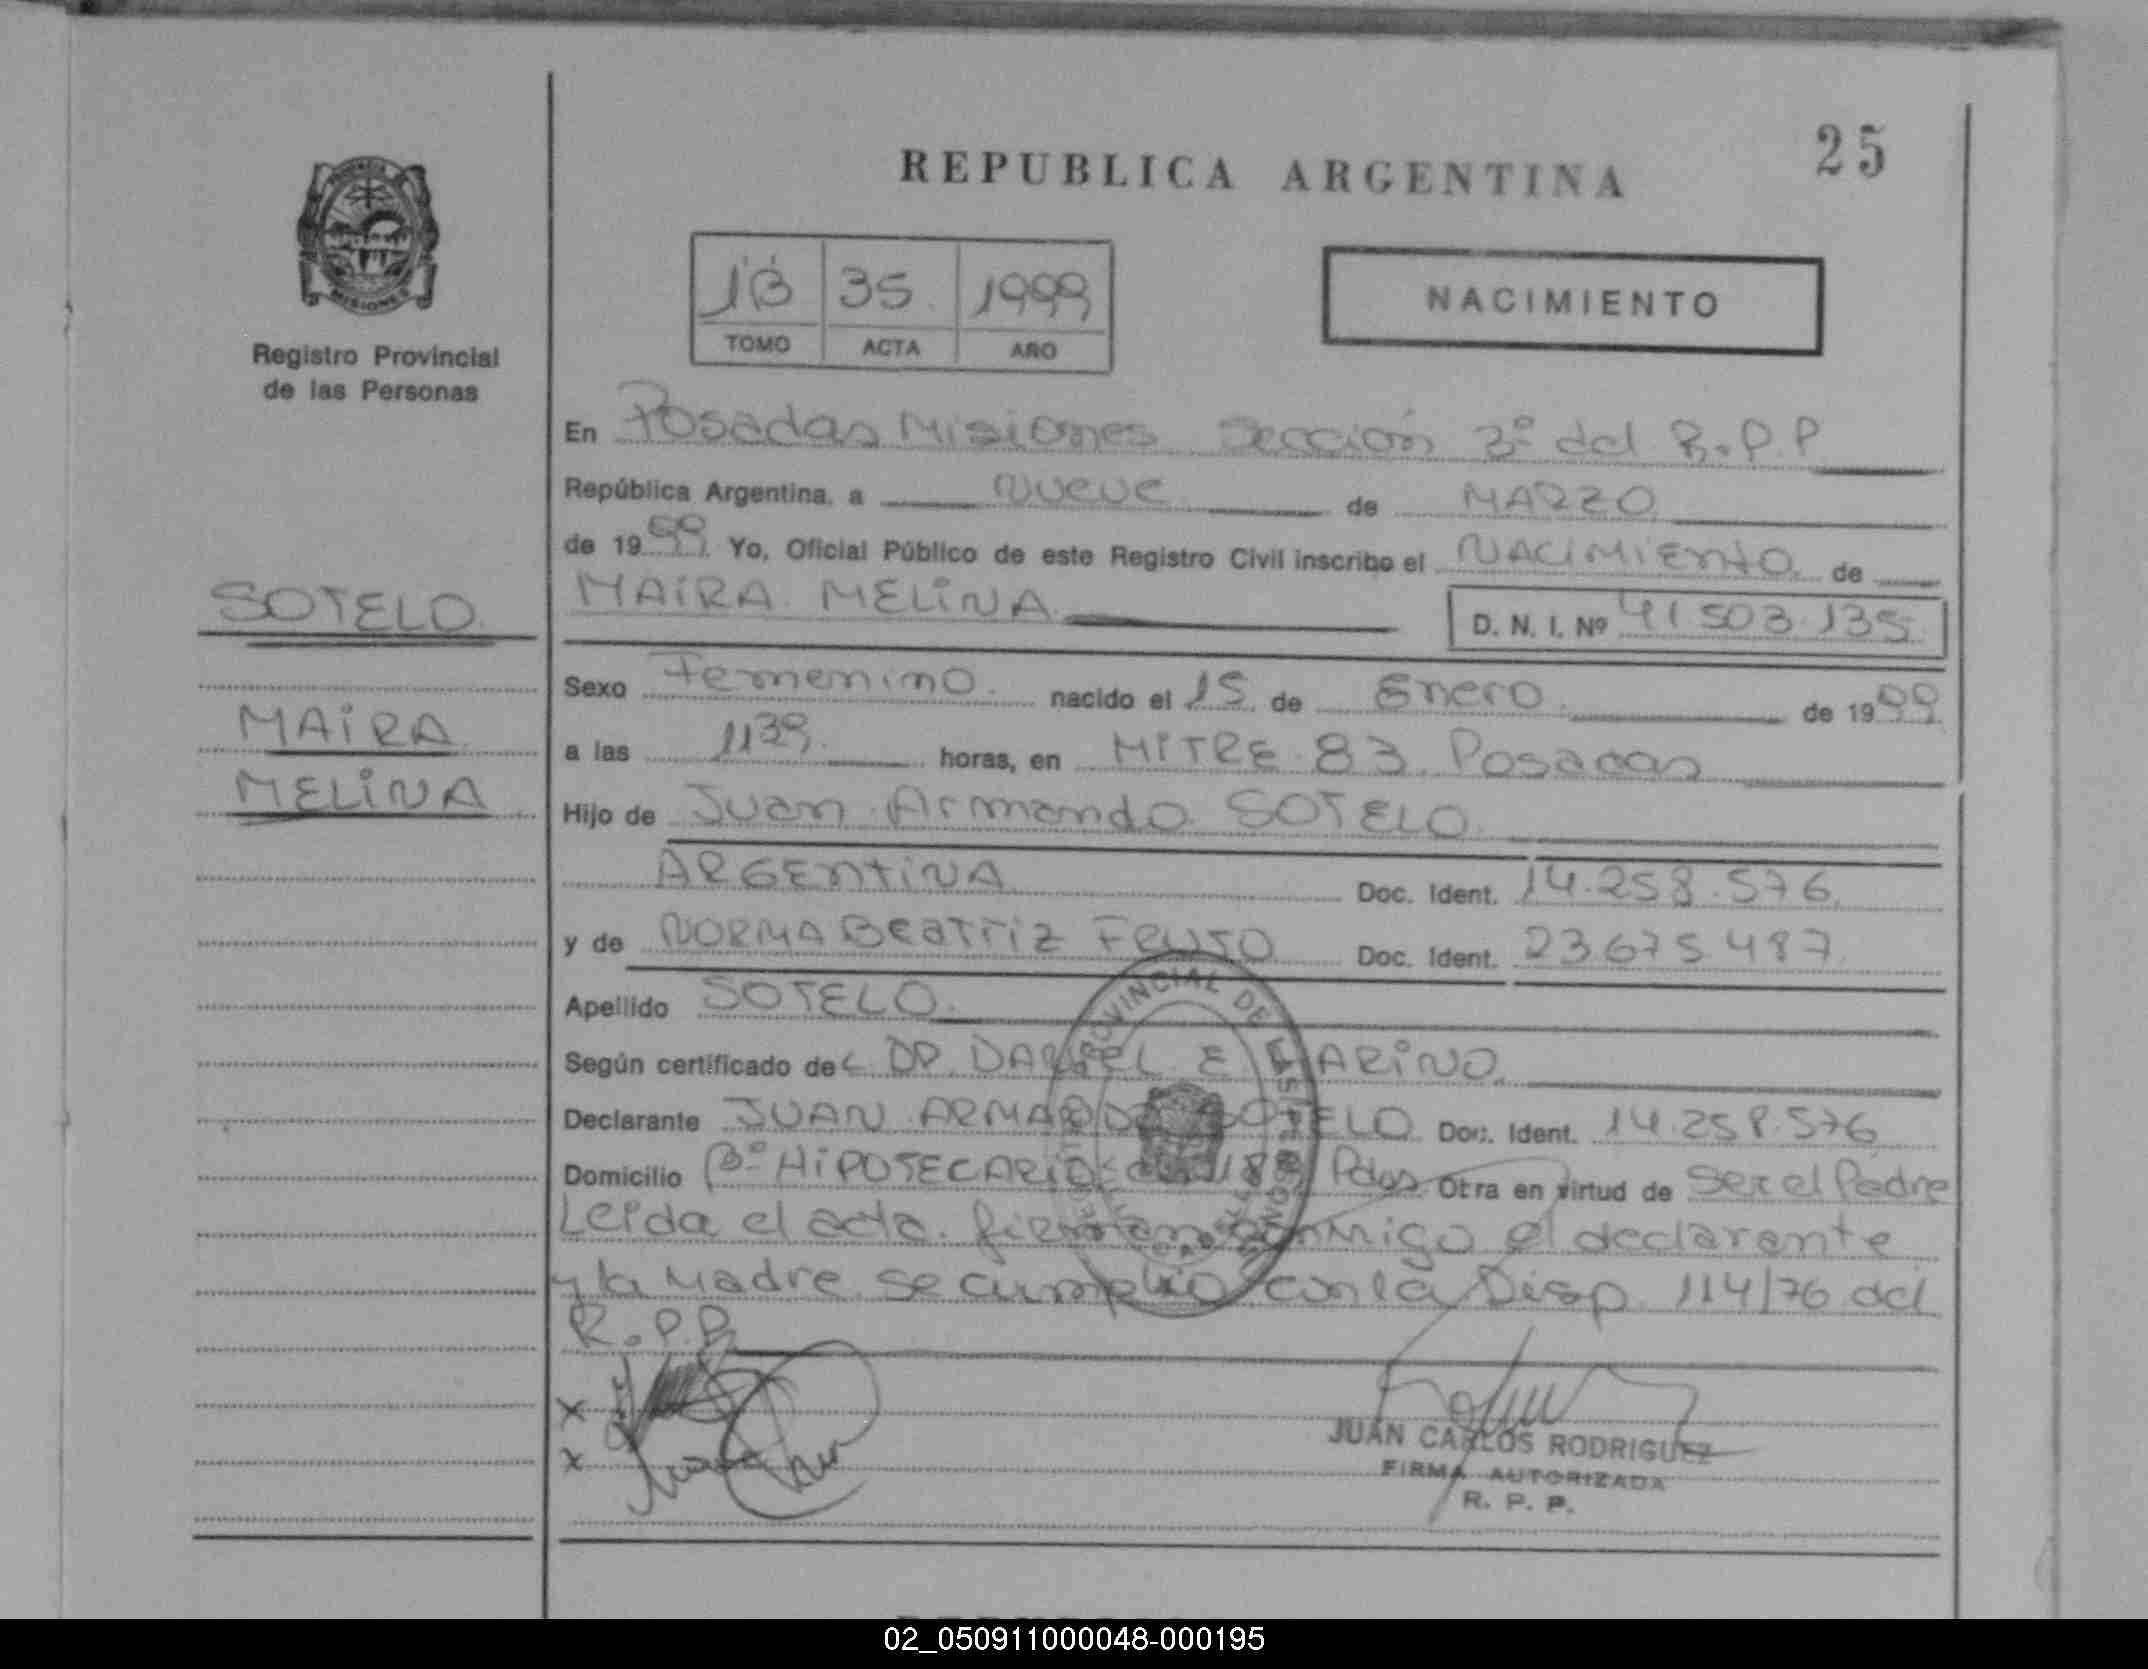 25
REPUBLICA ARGENTINA
MISIONES
Registro Provincial
de las Personas
13 35 1999
TOMO ACTA AÑO
NACIMIENTO
En Posadas Misiones Sección 3º del R.P.P
República Argentina, a nueve de MARZO
de 1999 Yo, Oficial Público de este Registro Civil inscribo el NACIMIENTO de
SOTELO
MAIRA MELINA D. N. I. Nº 41 503.135
Sexo Femenino nacido el 15 de Enero de 1999
MAIRA
a las 1139 horas, en MITRE 83 Posadas
MELINA
Hijo de Juan Armando SOTELO
ARGENTINA Doc. Ident. 14.258.576
y de NORMA BEATRIZ Doc. Ident. 23675487
Apellido SOTELO
Según certificado de DR. DANIEL E. MARINO
Declarante JUAN ARMANDO SOTELO Doc. Ident. 14.258.576
Domicilio Bº HIPOTECARIO Pdas Otra en virtud de Ser el Padre
Leida el acta firman conmigo el declarante
y la Madre se cumplio con la Disp. 114/76 del
R.P.P.
PROVINCIAL DE LAS
x
x
JUAN CARLOS RODRIGUEZ
FIRMA AUTORIZADA
R. P. P.
02_050911000048-000195